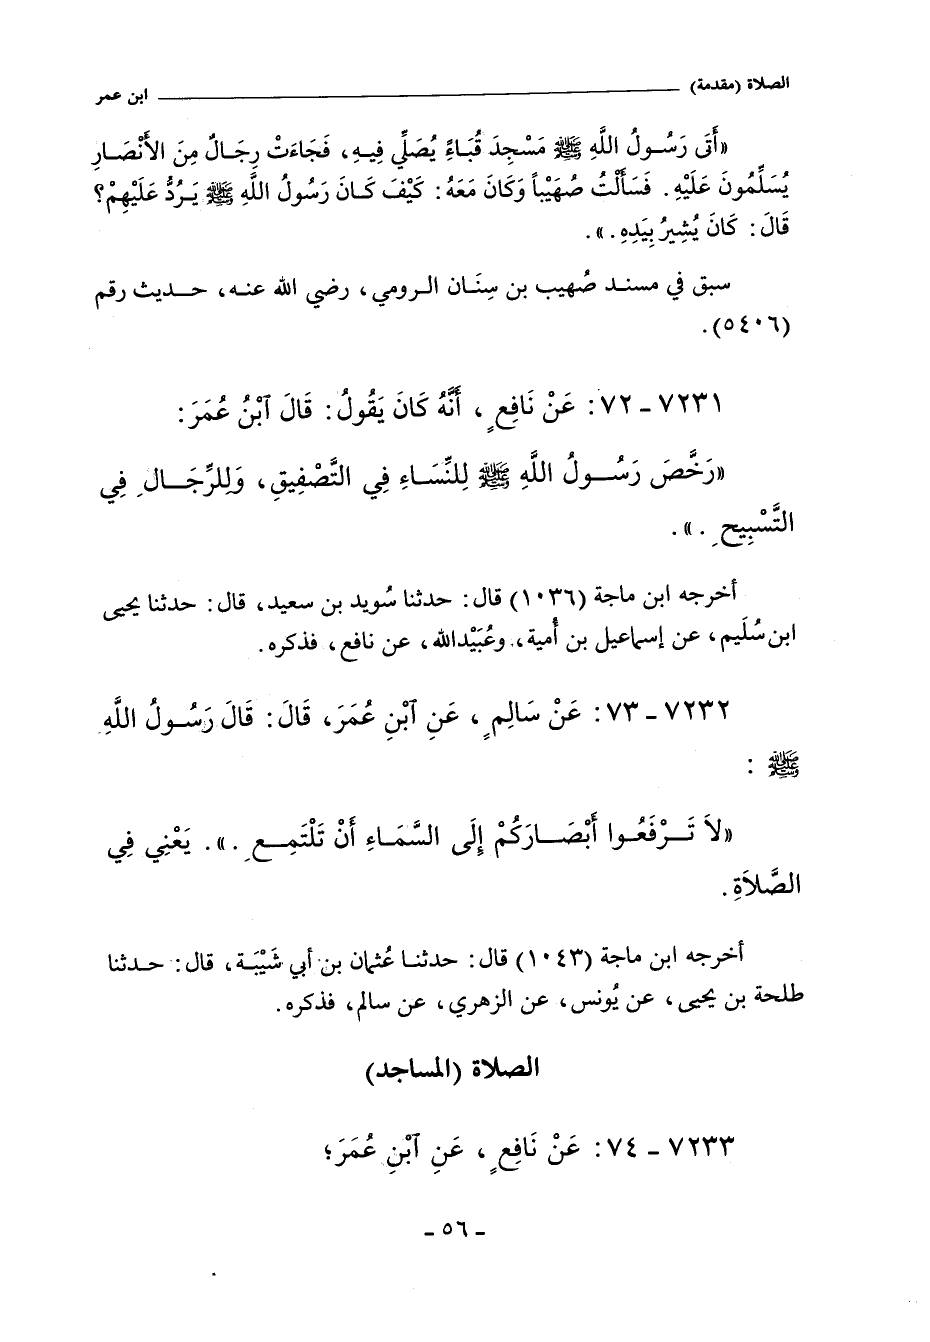 الصلاة (مقدمة) ــــــــ ابن عمر
«أَتَى رَسُولُ اللَّهِ ﷺ مَسْجِدَ قُبَاءٍ يُصَلِّي فِيهِ، فَجَاءَتْ رِجَالٌ مِنَ الأَنْصَارِ
يُسَلِّمُونَ عَلَيْهِ. فَسَأَلْتُ صُهَيْباً وَكَانَ مَعَهُ: كَيْفَ كَانَ رَسُولُ اللَّهِ ﷺ يَرُدُّ عَلَيْهِمْ؟
قَالَ: كَانَ يُشِيرُ بِيَدِهِ.».
سبق في مسند صُهيب بن سِنَان الرومي، رضي الله عنه، حديث رقم
(٥٤٠٦).
٧٢٣١ - ٧٢: عَنْ نَافِعٍ، أَنَّهُ كَانَ يَقُولُ: قَالَ ٱبْنُ عُمَرَ:
«رَخَّصَ رَسُولُ اللَّهِ ﷺ لِلنِّسَاءِ فِي التَّصْفِيقِ، وَلِلرِّجَالِ فِي
التَّسْبِيحِ.».
أخرجه ابن ماجة (١٠٣٦) قال: حدثنا سُويد بن سعيد، قال: حدثنا يحيى
ابن سُلَيم، عن إسماعيل بن أُمية، وعُبَيْدالله، عن نافع، فذكره.
٧٢٣٢ - ٧٣: عَنْ سَالِمٍ، عَنِ ٱبْنِ عُمَرَ، قَالَ: قَالَ رَسُولُ اللَّهِ
ﷺ:
«لاَ تَرْفَعُوا أَبْصَارَكُمْ إِلَى السَّمَاءِ أَنْ تَلْتَمِعَ.». يَعْنِي فِي
الصَّلاَةِ.
أخرجه ابن ماجة (١٠٤٣) قال: حدثنا عُثمان بن أبي شَيْبَة، قال: حدثنا
طلحة بن يحيى، عن يُونس، عن الزهري، عن سالم، فذكره.
الصلاة (المساجد)
٧٢٣٣ - ٧٤: عَنْ نَافِعٍ، عَنِ ٱبْنِ عُمَرَ؛
- ٥٦ -